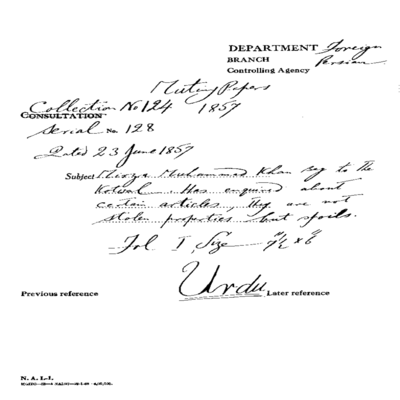 DEPARTMENT Foreign
BRANCH Persian
Controlling Agency
Mutiny Papers
Collection No 124 1857
CONSULTATION
Serial No 128
Dated 23 June 1857
Subject Mirza Muhammad Khan say to The
Kotwal. Has enquired about
certain articles, They are not
stolen properties but spoils.
Fol I, Size 7½" x 6"
Urdu
Previous reference Later reference
N. A. I.-1.